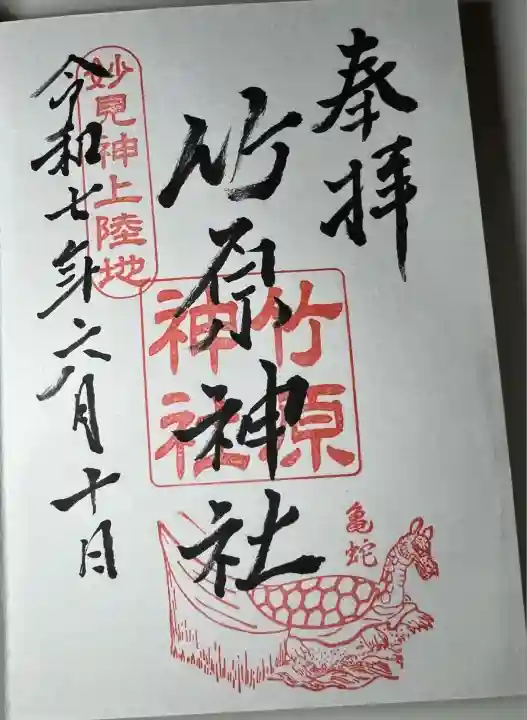 奉拝
竹原神社
竹原
神社
妙見神上陸地
令和七年六月十日
亀蛇